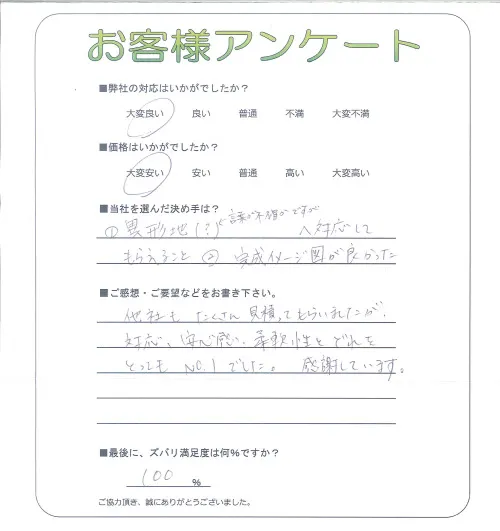 お客様アンケート
■弊社の対応はいかがでしたか？
大変良い 良い 普通 不満 大変不満
■価格はいかがでしたか？
大変安い 安い 普通 高い 大変高い
■当社を選んだ決め手は？
言葉が不確かですが
①異形地(?)へ対応して
もらえること ② 完成イメージ図が良かった
■ご感想・ご要望などをお書き下さい。
他社も たくさん見積ってもらいましたが、
対応、安心感、柔軟性と どれを
とっても NO.1 でした。 感謝しています。
■最後に、ズバリ満足度は何％ですか？
100 ％
ご協力頂き、誠にありがとうございました。